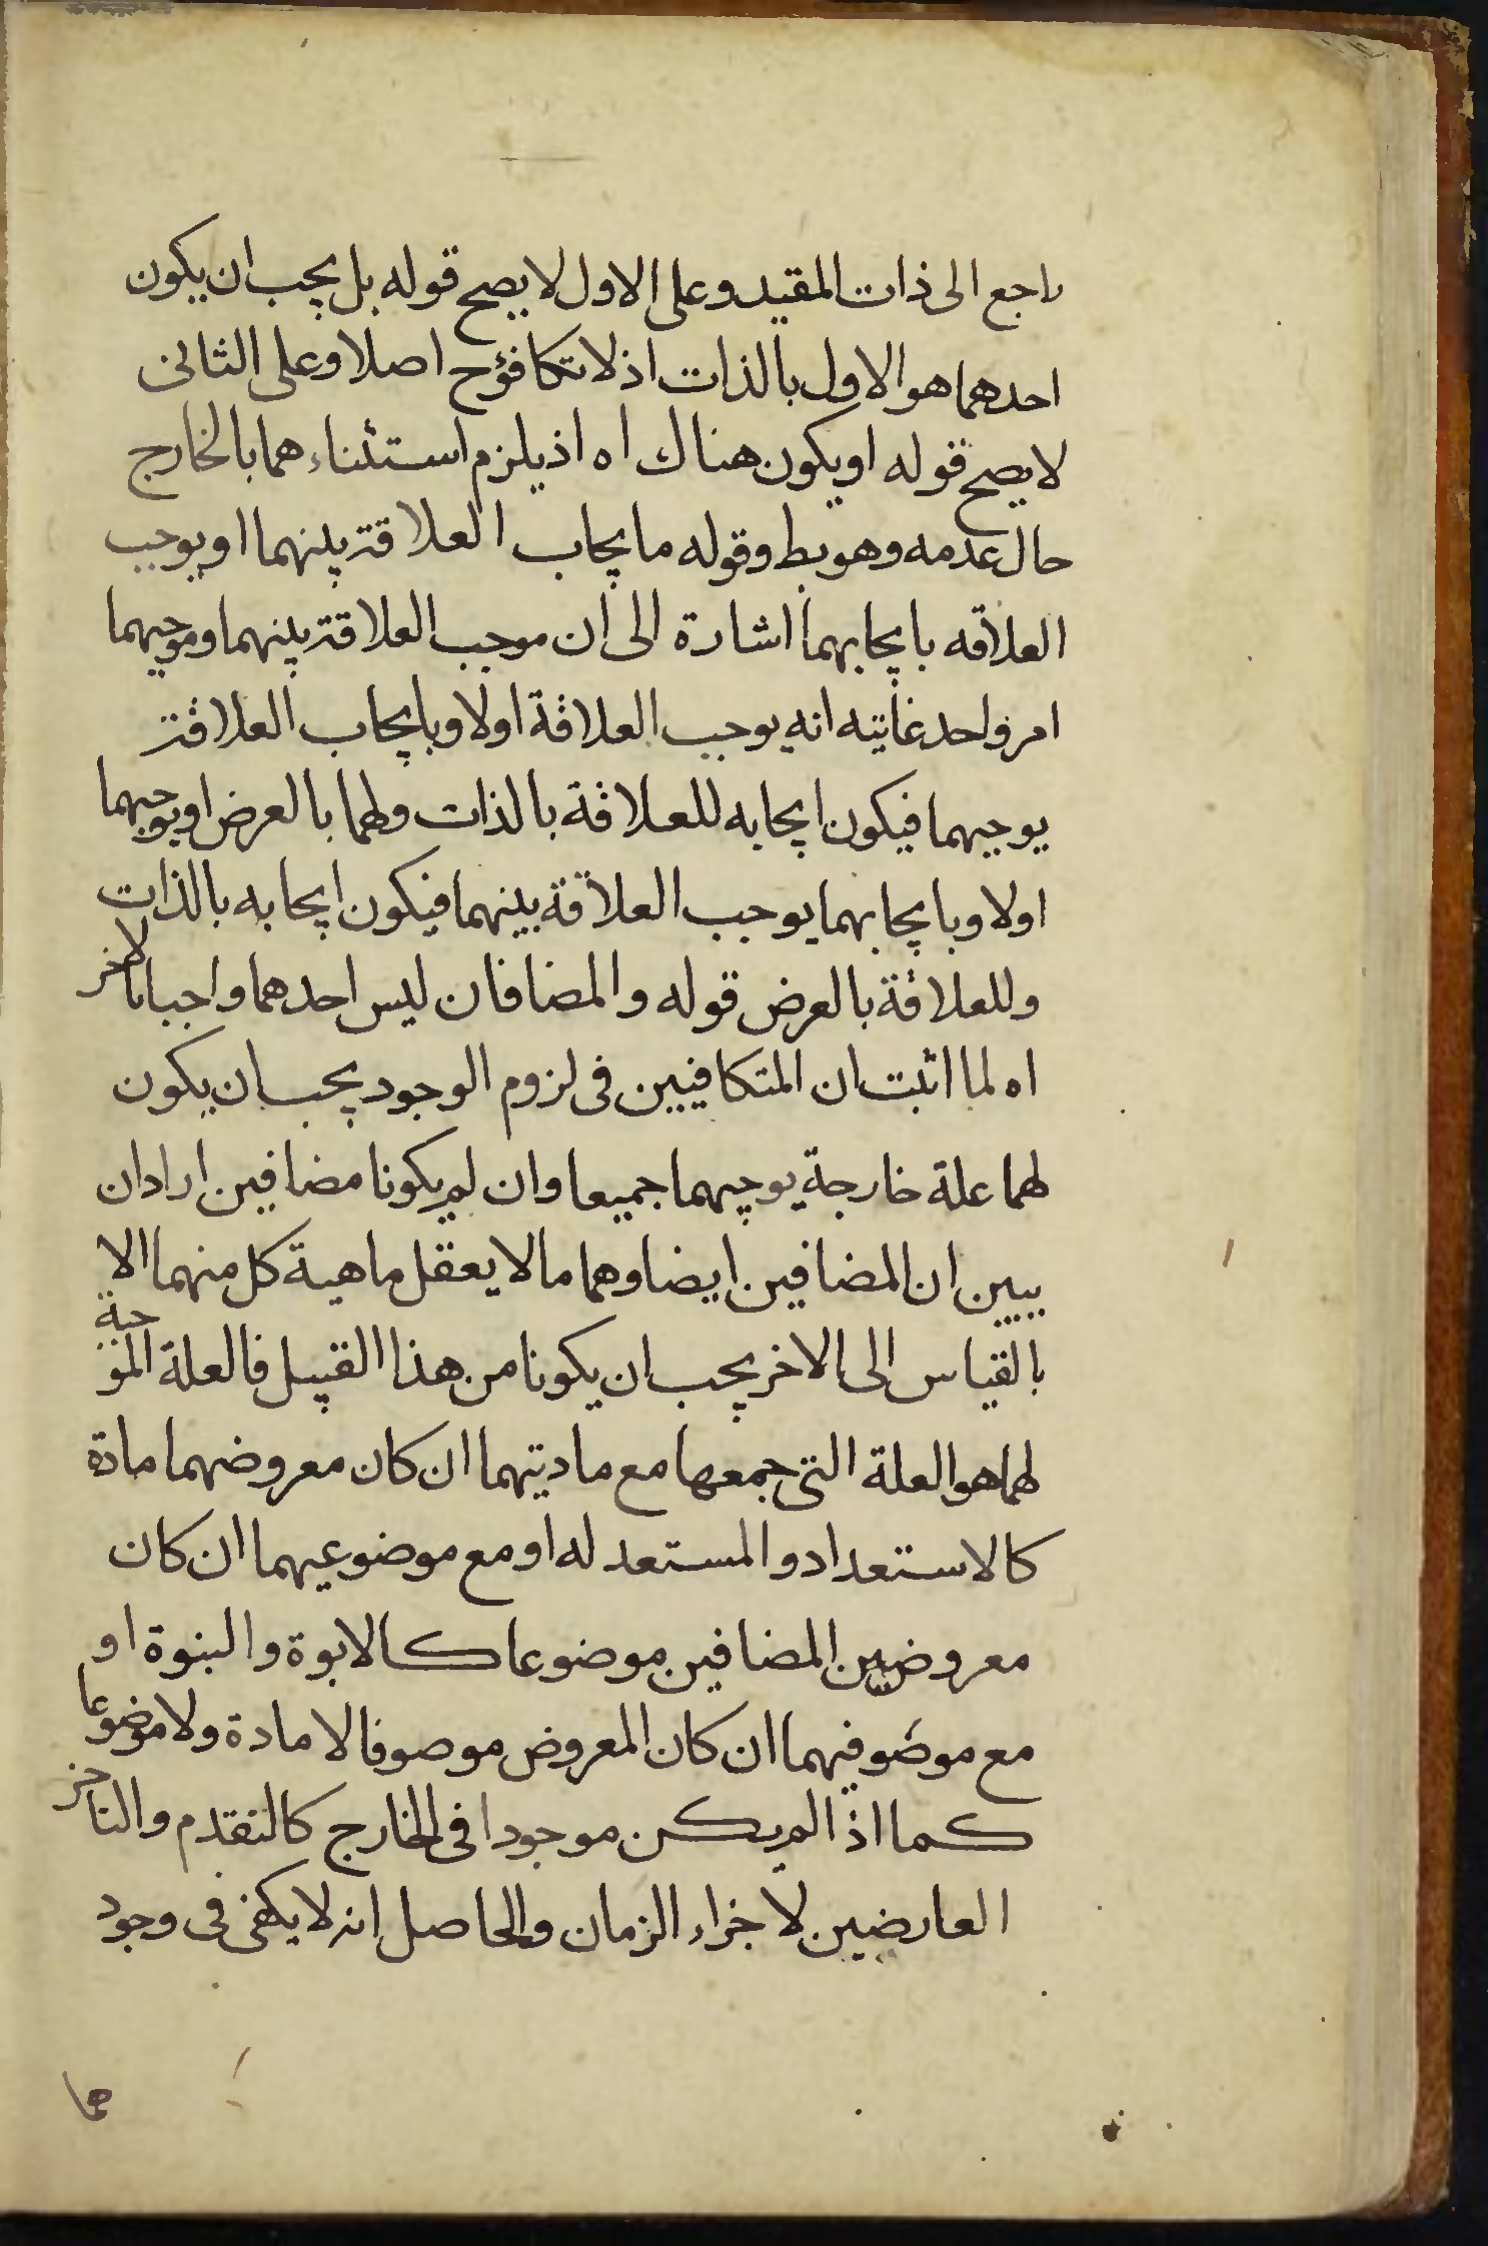 راجع الى ذات المقيد وعلى الاول لا يصح قوله بل يجب ان يكون
احدهما هو الاول بالذات اذ لا تكافؤ ح اصلا وعلى الثانى
لا يصح قوله او يكون هناك اه اذ يلزم استثناءهما بالخارج
حال عدمه وهو بط وقوله ما يجاب العلاقة بينهما او يوجب
العلاقه بايجابهما اشارة الى ان موجب العلاقة بينهما وموجبهما
امر واحد غايته انه يوجب العلاقة اولا وبايجاب العلاقة
يوجبهما فيكون ايجابه للعلاقة بالذات ولهما بالعرض او يوجبهما
اولا وبايجابهما يوجب العلاقة بينهما فيكون ايجابه بالذات
وللعلاقة بالعرض قوله والمضافان ليس احدهما واجبا بالاخر
اه لما اثبت ان المتكافيين فى لزوم الوجود يجب ان يكون
لهما علة خارجة يوجبهما جميعا وان لم يكونا مضافين اراد ان
يبين ان المضافين ايضا وهما ما لا يعقل ماهية كل منهما الا
بالقياس الى الاخر يجب ان يكونا من هذا القبيل فالعلة الموجبة
لهما هو العلة التى جمعها مع ماديتهما ان كان معروضهما مادة
كالاستعداد والمستعد له او مع موضوعيهما ان كان
معروضين المضافين موضوعا كالابوة والبنوة او
مع موصوفيهما ان كان المعروض موصوفا لا مادة ولا موضوعا
كما اذا لم يكن موجودا فى الخارج كالتقدم والتاخر
العارضين لاجزاء الزمان والحاصل انه لا يكفى فى وجود